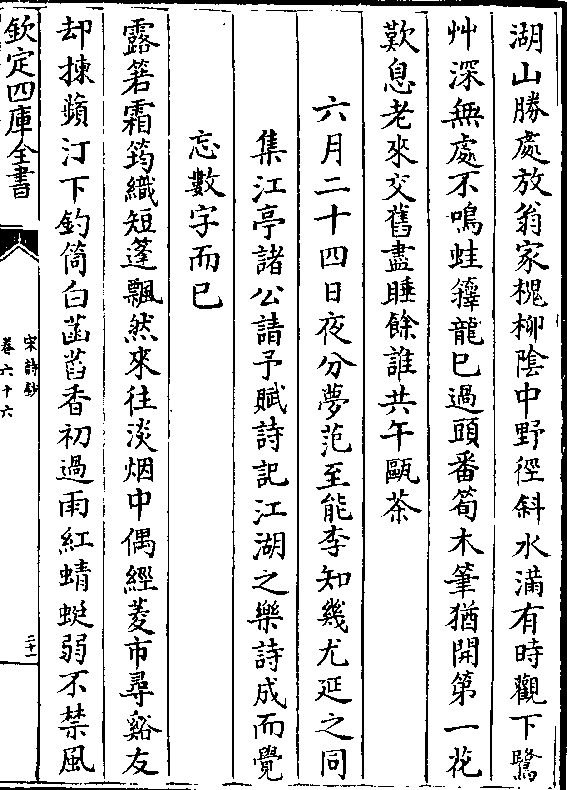 湖山勝處放翁家槐柳陰中野徑斜水滿有時觀下鷺
艸深無處不鳴蛙籜龍已過頭番筍木筆猶開第一花
歎息老來交舊盡睡餘誰共午甌茶
六月二十四日夜分夢范至能李知幾尤延之同
集江亭諸公請予賦詩記江湖之樂詩成而覺
忘數字而已
露箬霜筠織短篷飄然來往淡烟中偶經菱市尋谿友
却揀蘋汀下釣筒白菡萏香初過雨紅蜻蜓弱不禁風
欽定四庫全書
宋詩鈔
卷六十六
二十一